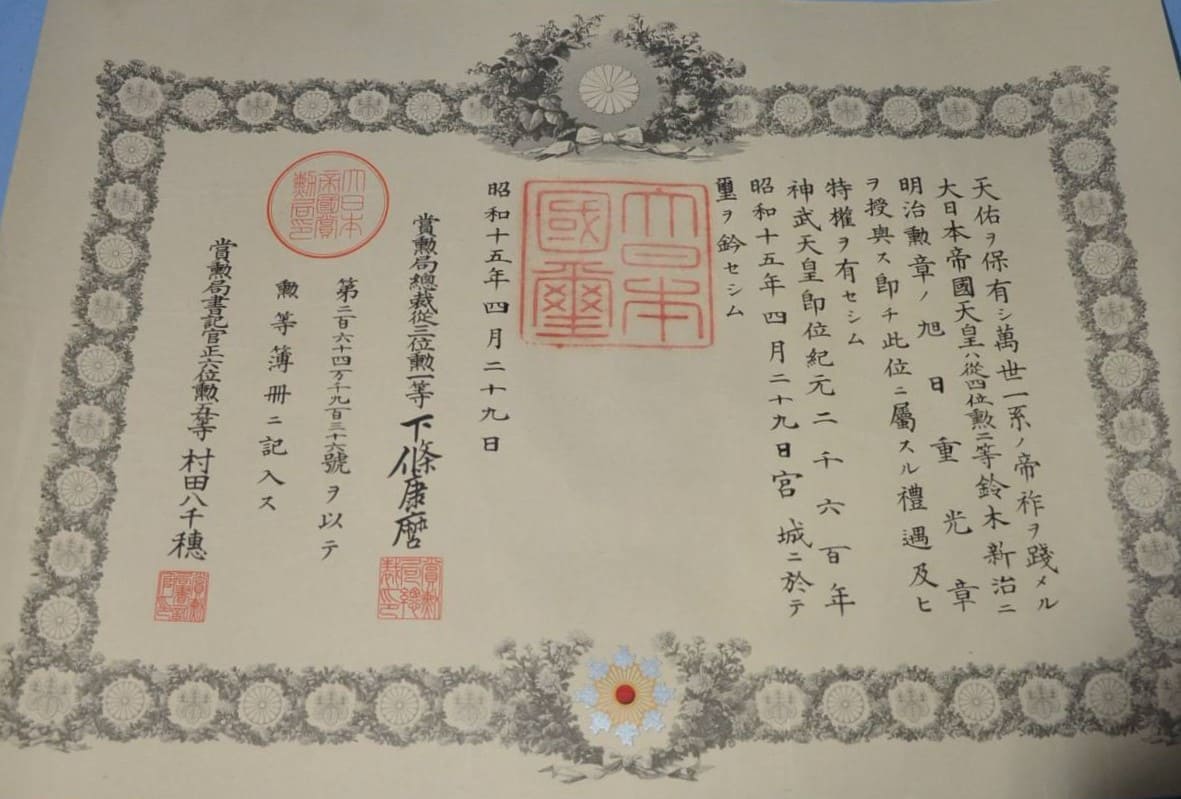 天佑ヲ保有シ萬世一系ノ帝祚ヲ踐メル
大日本帝國天皇ハ從四位勲二等鈴木新治ニ
明治勲章ノ旭日重光章
ヲ授與ス即チ此位ニ屬スル禮遇及ヒ
特權ヲ有セシム
神武天皇即位紀元二千六百年
昭和十五年四月二十九日宮城ニ於テ
璽ヲ鈐セシム
大日本
國璽
昭和十五年四月二十九日
賞勲局總裁從三位勲一等下條康麿
賞勲局總裁印
第二百六十四万千九百三十六號ヲ以テ
勲等簿册ニ記入ス
大日本
帝國賞
勲局印
賞勲局書記官正六位勲五等村田八千穗